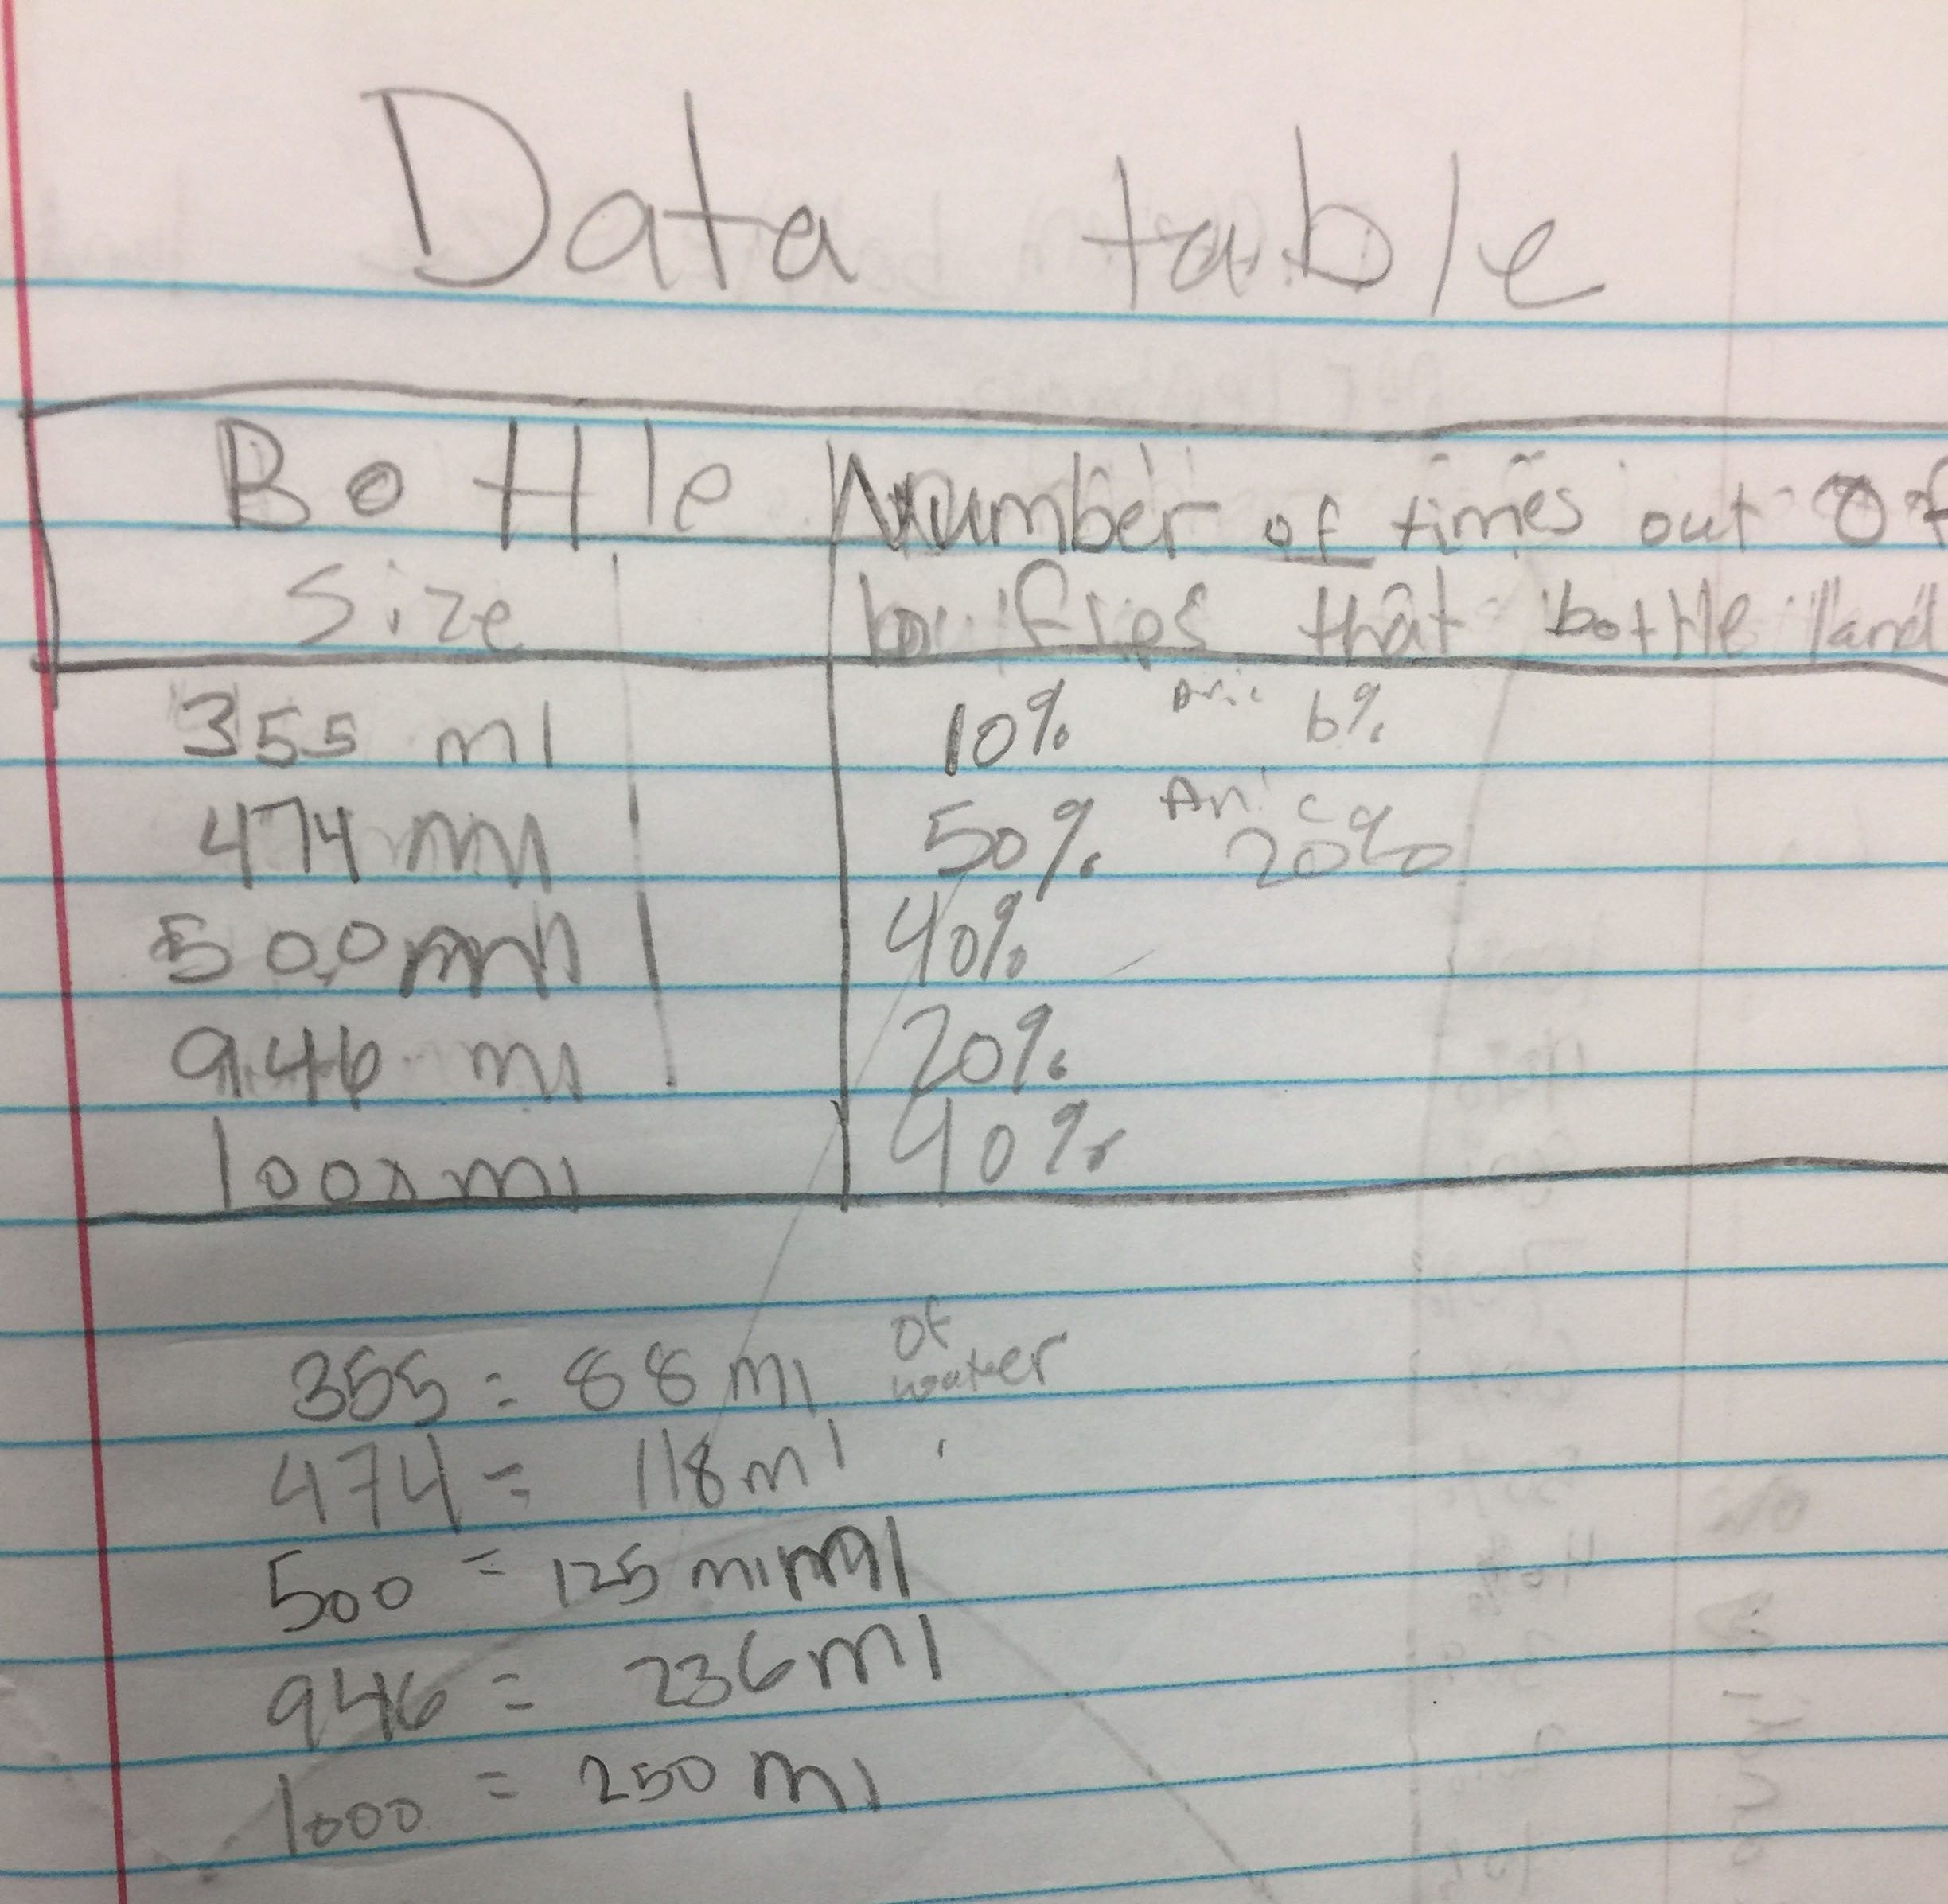 Data table
Bottle Number of times out of
Size flips that bottle land
355 ml 10% 6%
474 ml 50% Aric 20%
500 ml 40%
946 ml 20%
1000 ml 40%
355 = 88 ml of water
474 = 118 ml
500 = 125 ml ml
946 = 236 ml
1000 = 250 ml